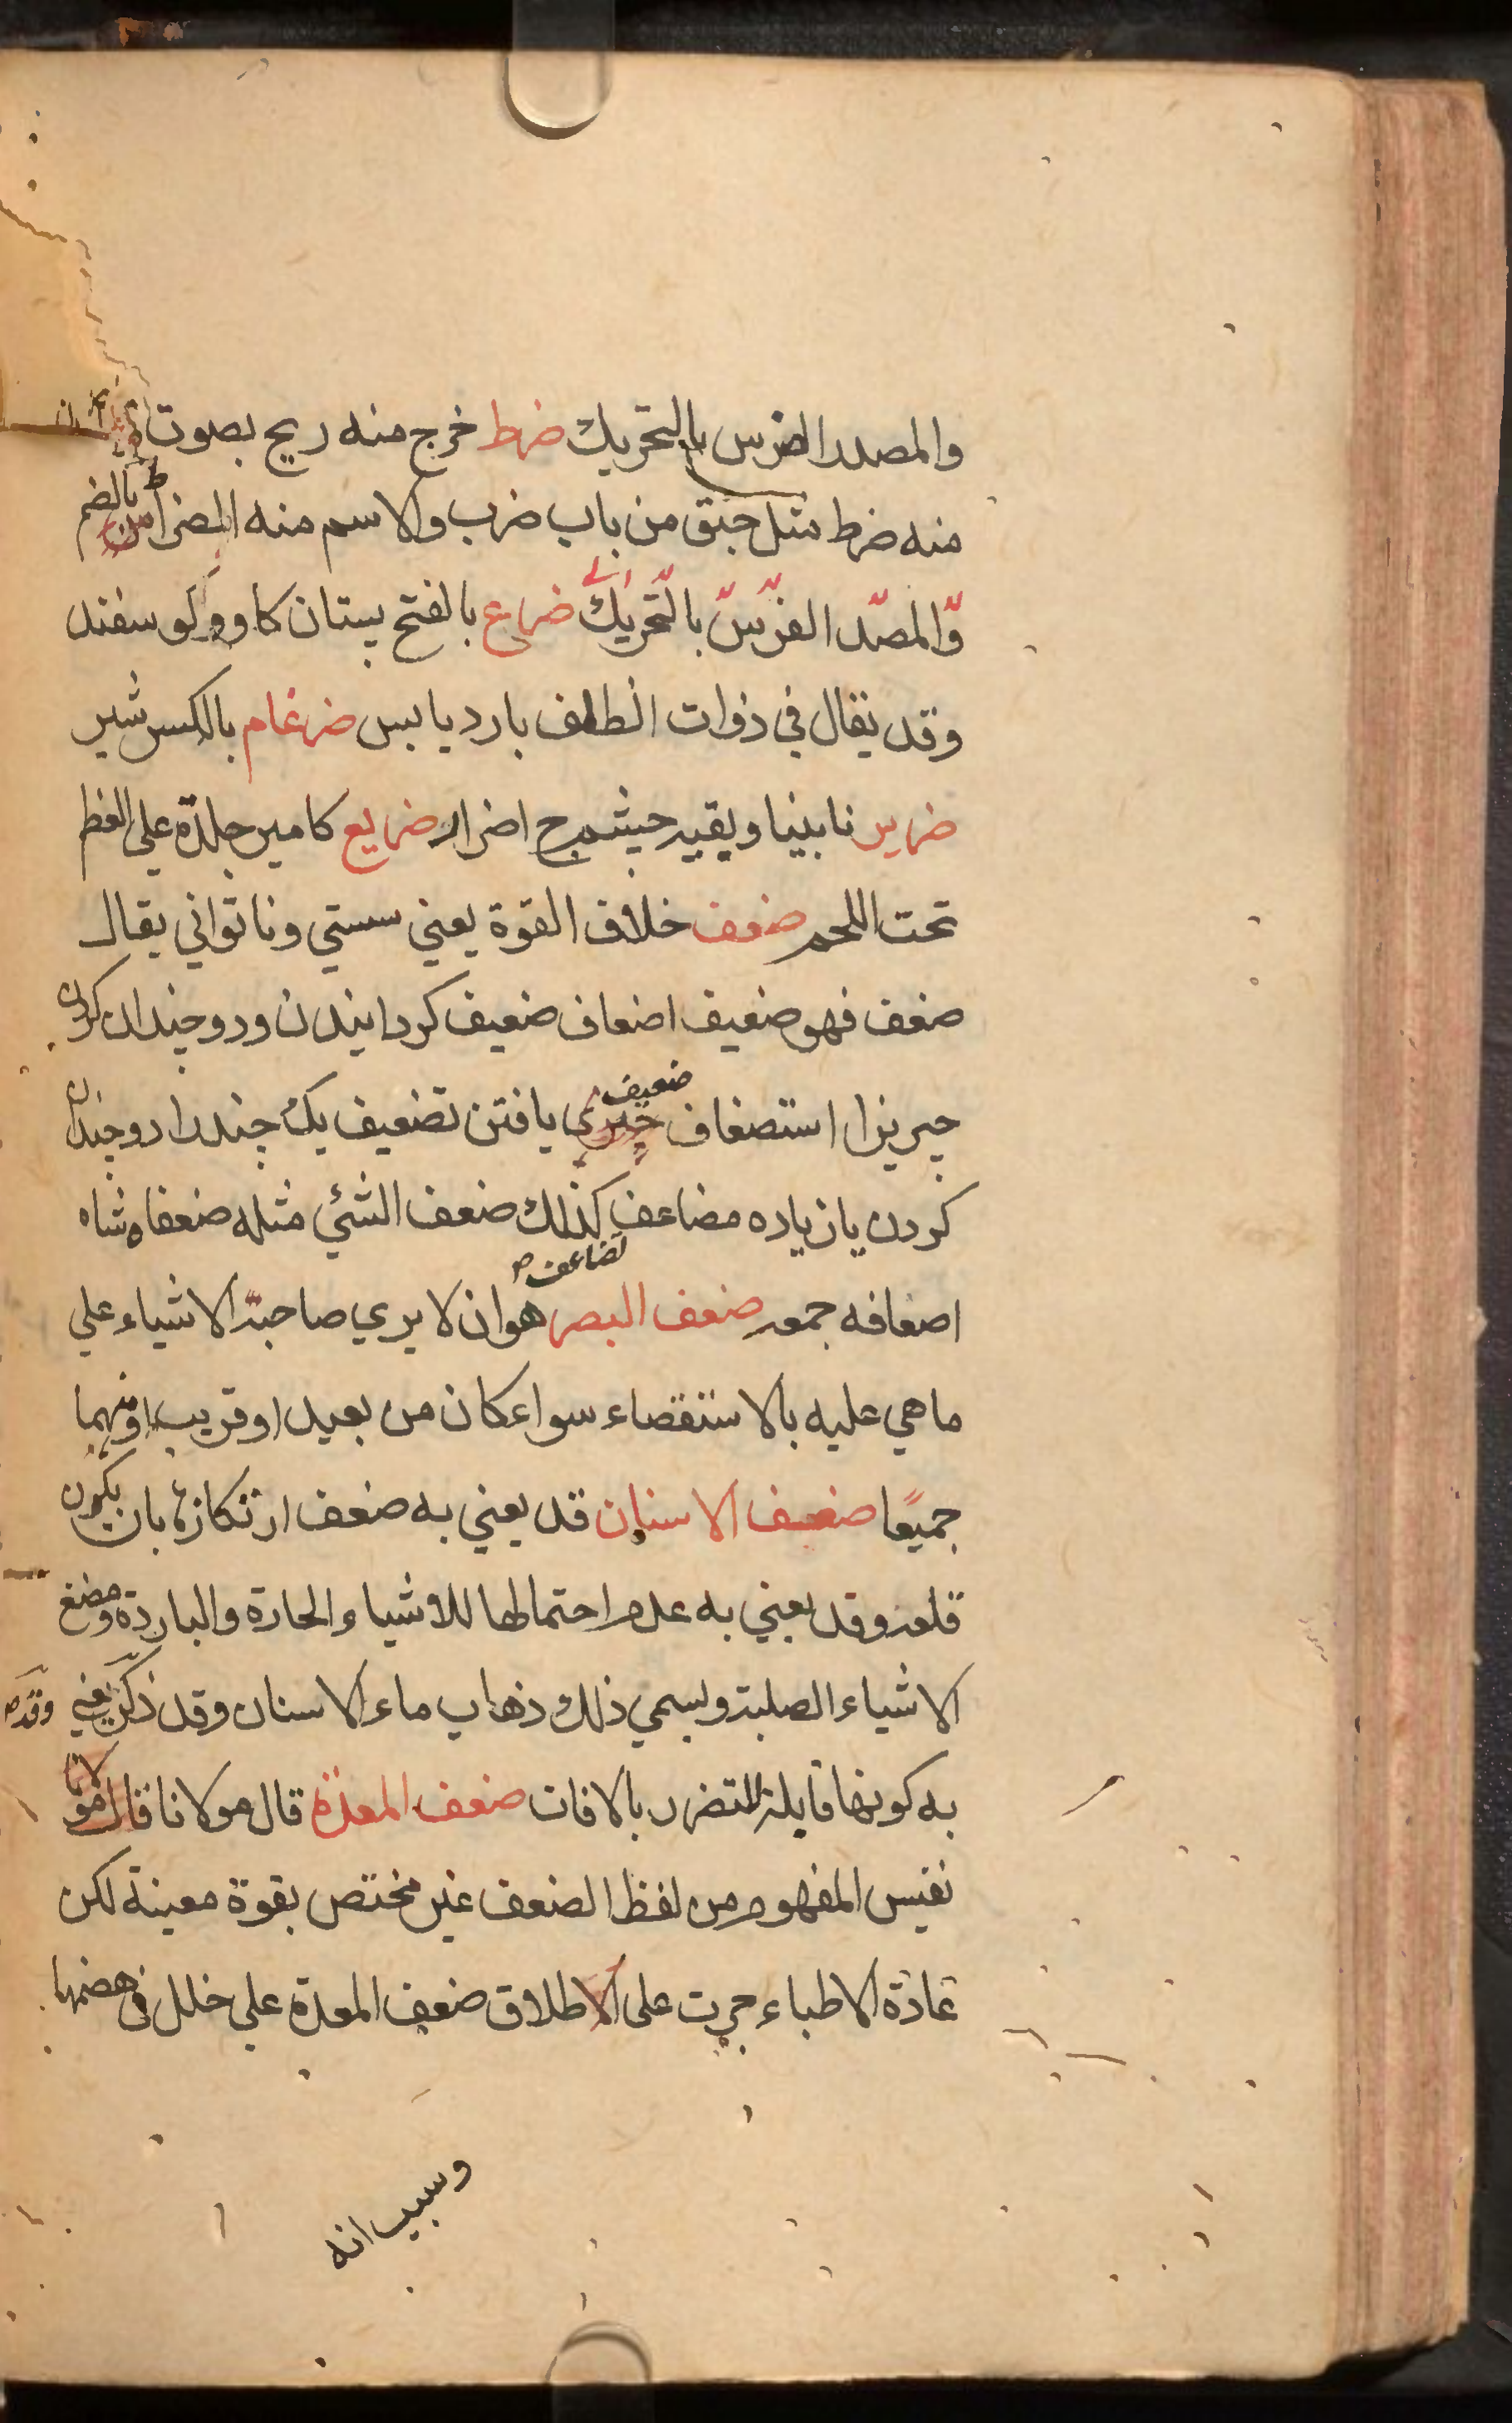 والمصدر الضرس بالتحريك ضرط خرج منه ريح بصوت
منه ضرط مثل حبق من باب ضرب والاسم منه الضراط بالضم
والمصدر الضرس بالتحريك ضراع بالفتح پستان كاو وكوسفند
وقد يقال في ذوات الظلف بارد يابس ضرغام بالكسر شير
ضرير نابينا وبقيه جيشم ج اضرار ضريع كامير جلدة على العظم
تحت اللحم ضعف خلاف القوة يعني سستي وناتواني يقال
ضعف فهو ضعيف اضعاف ضعيف كردانيدن ودوچندان كردن
چيزيرا استضعاف ضعيف يافتن تضعيف يك چند را دو چندان
كردن يا زياده مضاعف كذلك ضعف الشئي مثله ضعفاه مثلاه
تضاعف
اضعافه جمعه ضعف البصر هو ان لا يري صاحبة الاشياء علي
ما هي عليه بالاستقصاء سواء كان من بعيد او قريب او منهما
جميعًا ضعف الاسنان قد يعني به ضعف ارتكازها بان يكون
قلعه وقد يعني به عدم احتمالها للاشياء الحارة والباردة ومضغ
الاشياء الصلبة ويسمي ذلك ذهاب ماء الاسنان وقد ذكر يعني وقد
به كونها قابلة للتضرر بالافات ضعف المعدة قال مولانا قال مولانا
نفيس المفهوم من لفظ الضعف غير مختص بقوة معينة لكن
عادة الاطباء جرت على الاطلاق ضعف المعدة علي خلل في هضمها
وسبب انه